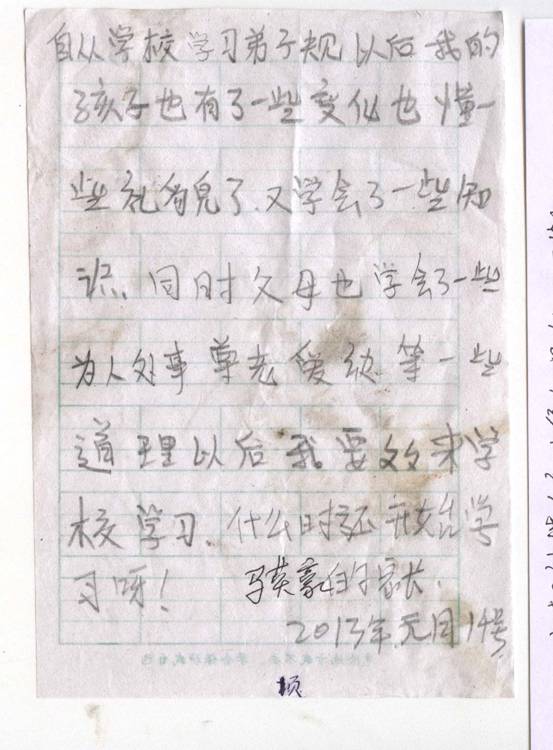 自从学校学习弟子规以后我的
孩子也有了一些变化也懂一
些礼貌了、又学会了一些知
识、同时父母也学会了一些
为人处事尊老爱幼等一些
道理以后我要多多来学
校学习、什么时候还开始学
习呀！
马英豪的家长.
2013年元月14号